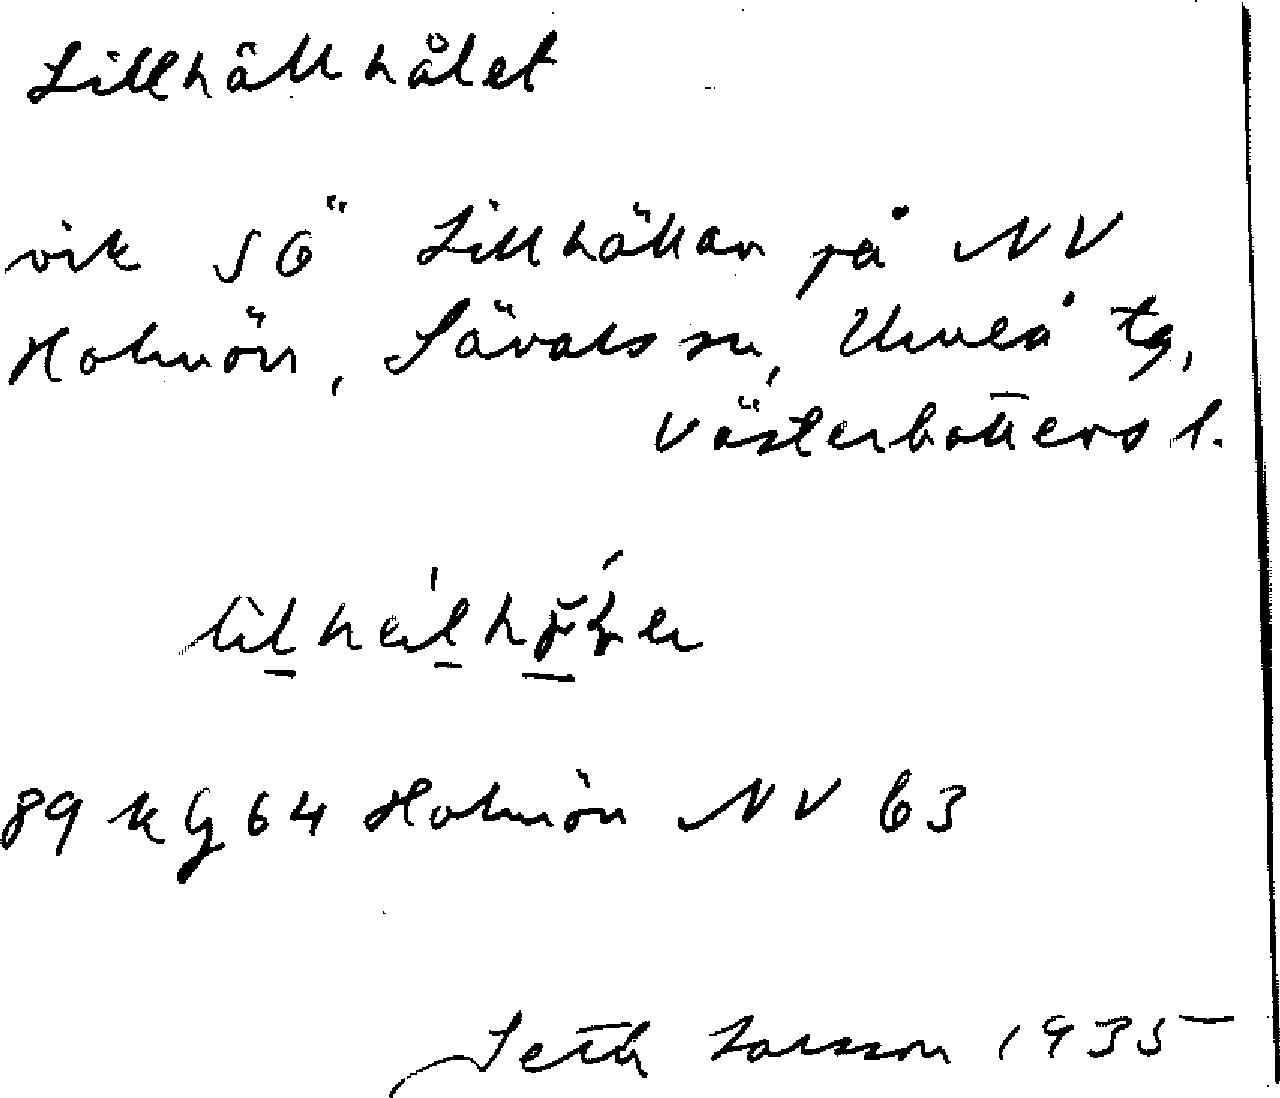 Lillhällhålet
vik SÖ Lillhällan på NV
Holmön, Sävars sn, Umeå tg,
Västerbottens l.
89 kg 64 Holmön NV 63
Seth Larsson 1935